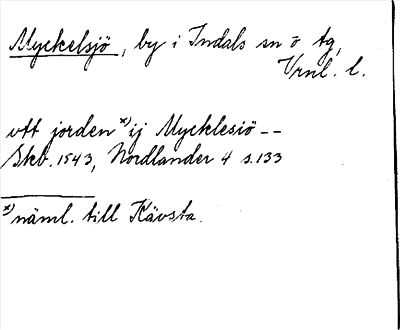 Myckelsjö, by i Indals sn o tg,
Vrnl. l.
vtt jorden x) ij Mycklesiö --
Skb. 1543, Nordlander 4 s.133
x) näml. till Kävsta.